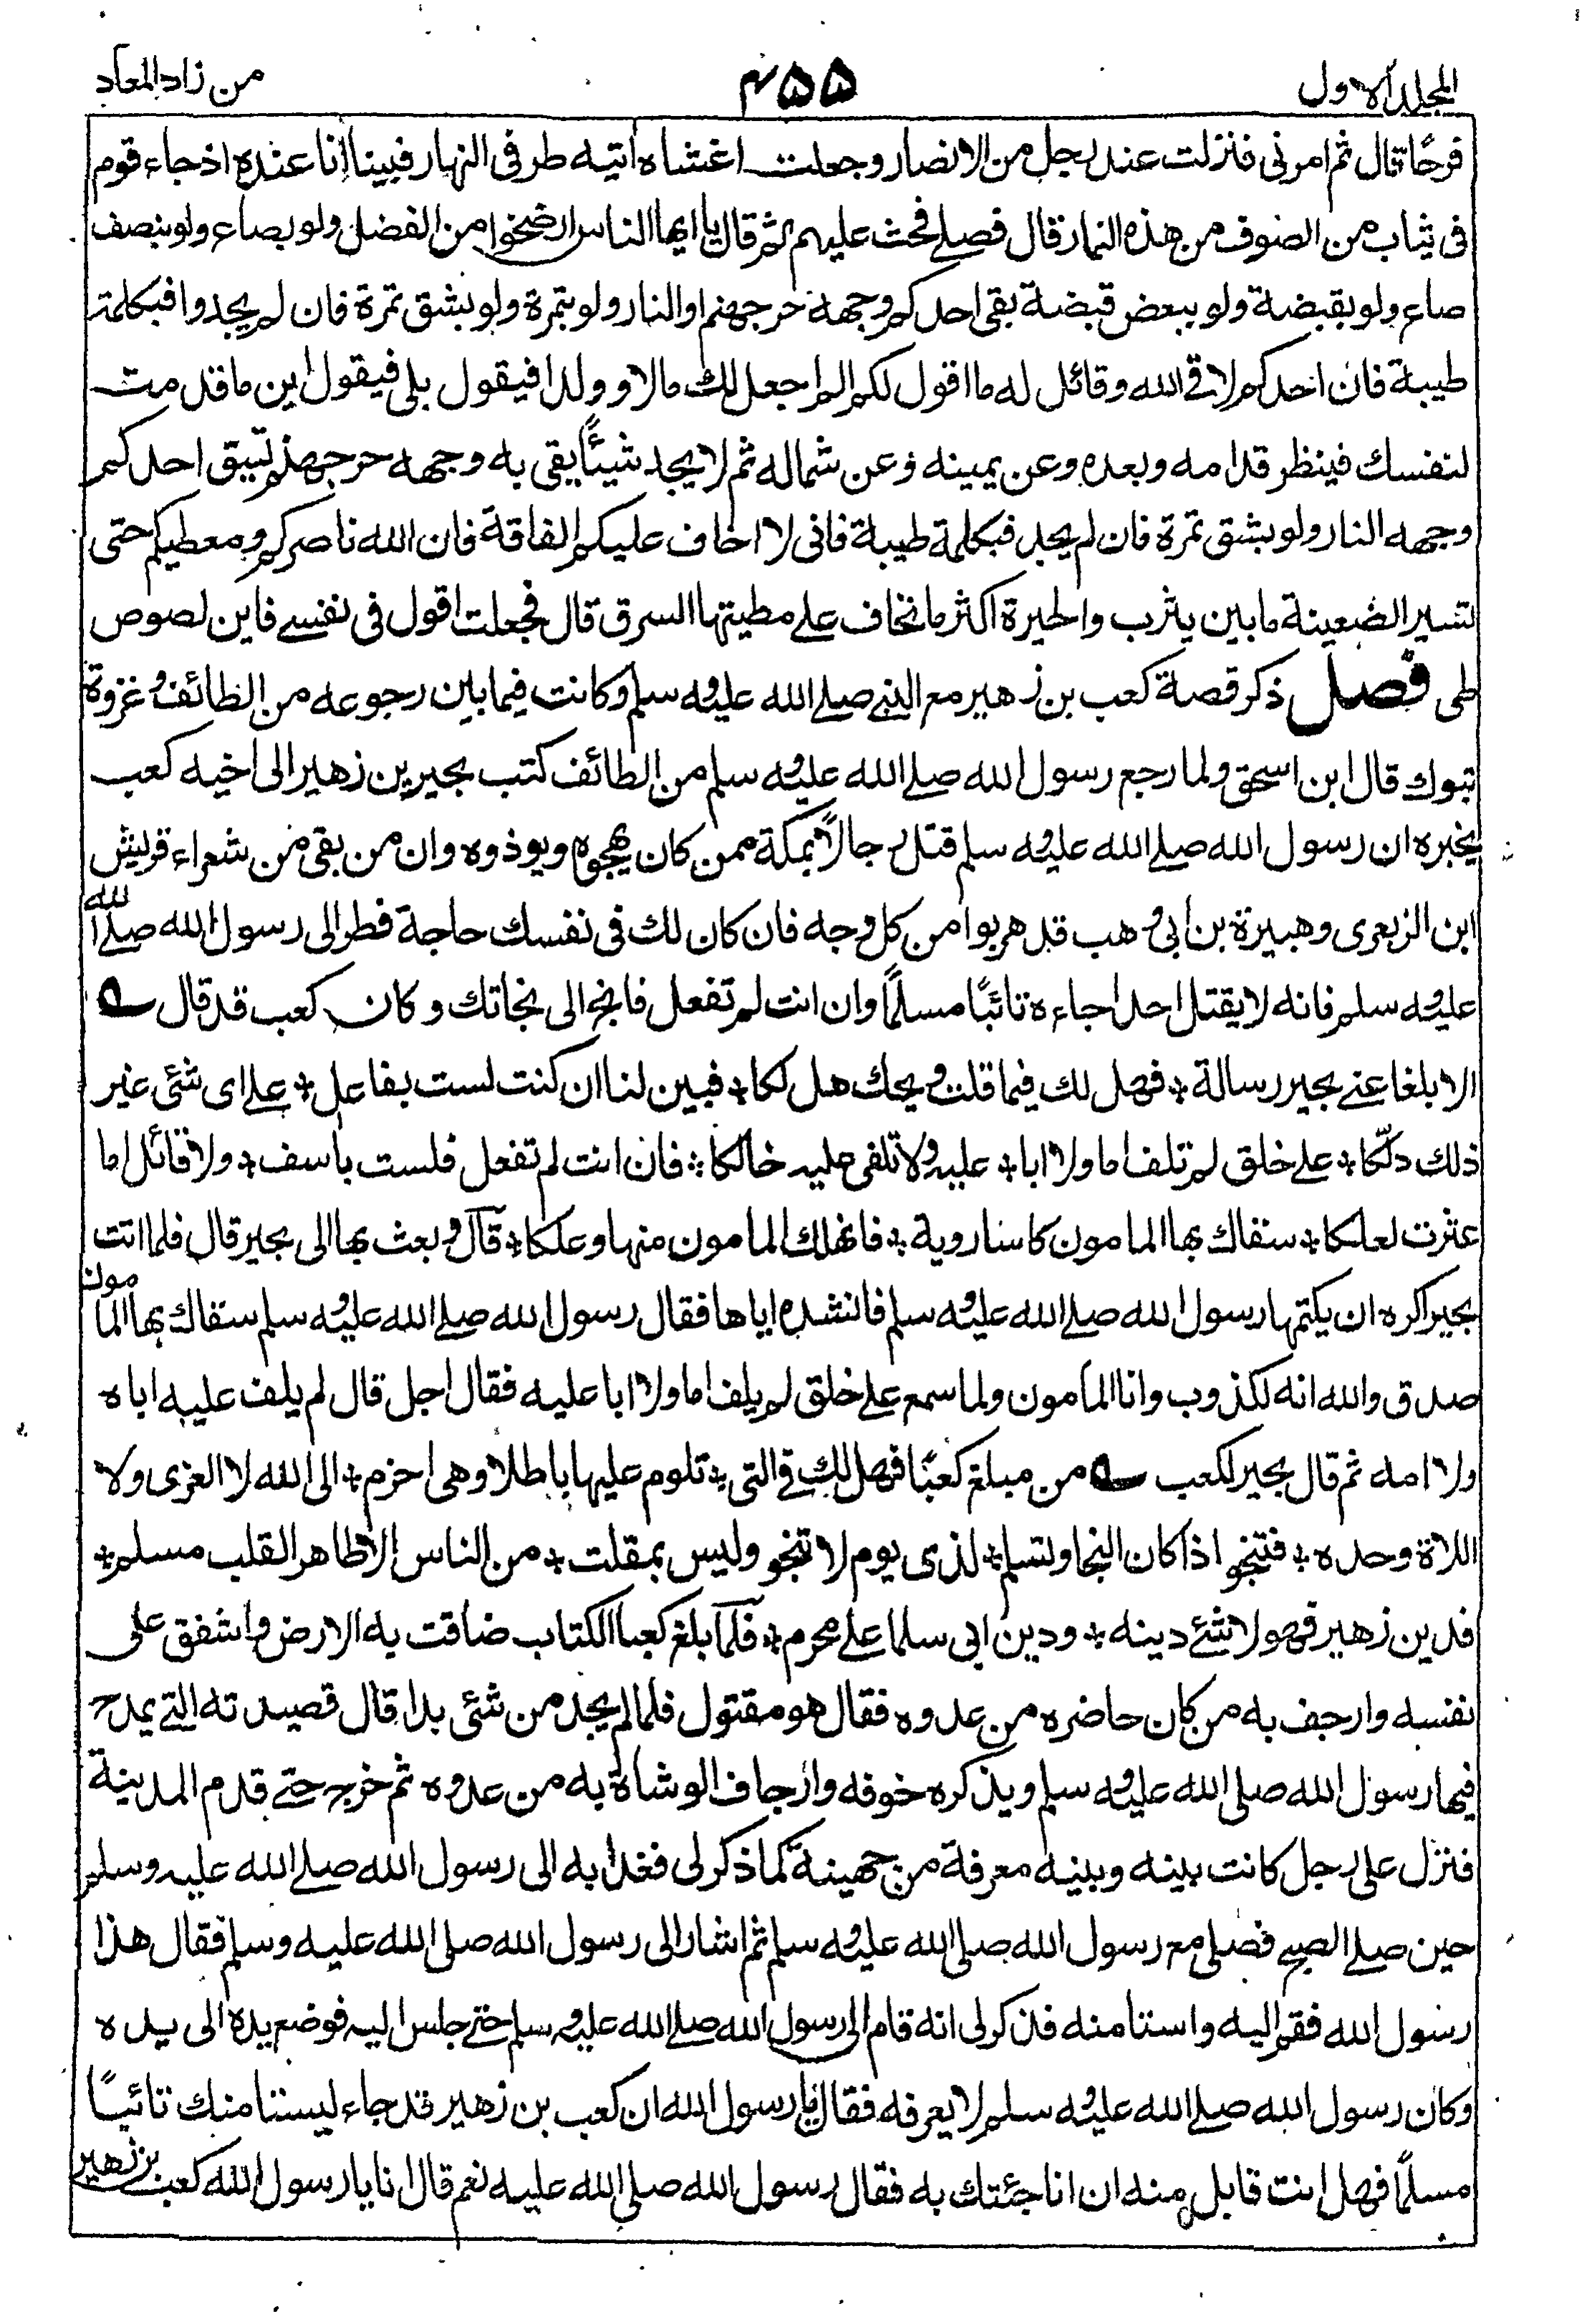 المجلد الاول ۴۵۵ من زاد المعاد
فرحًا قال ثم امرنى فنزلت عند رجل من الانصار وجعلت اغشاه اتيه طرفى النهار فبينا انا عنده اذ جاء قوم
فى ثياب من الصوف من هذه النمار قال فصلے فحث عليهم ثم قال يا ايها الناس ارضخوا من الفضل ولو بصاع ولو بنصف
صاع ولو بقبضة ولو ببعض قبضة يقى احدكم وجهه حر جهنم او النار ولو بتمرة ولو بشق تمرة فان لم يجدوا فبكلمة
طيبة فان احدكم لاقے الله وقائل له ما اقول لكم الم اجعل لك مالا وولدا فيقول بلى فيقول اين ما قدمت
لنفسك فينظر قدامه وبعده وعن يمينه وعن شماله ثم لا يجد شيئًا يقى به وجهه حر جهنم تيق احدكم
وجهه النار ولو بشق تمرة فان لم يجد فبكلمة طيبة فانى لا اخاف عليكم الفاقة فان الله ناصركم ومعطيكم حتى
تسير الضعينة ما بين يثرب والحيرة اكثر ما نخاف علے مطيتها السرق قال فجعلت اقول فى نفسے فاين لصوص
طى فصل ذكر قصة كعب بن زهير مع النبے صلے الله عليه وسلم وكانت فيما بين رجوعه من الطائف وغزوة
تبوك قال ابن اسحق ولما رجع رسول الله صلے الله عليه وسلم من الطائف كتب بجير بن زهير الى اخيه كعب
يخبره ان رسول الله صلے الله عليه وسلم قتل رجالًا بمكة ممن كان يهجوه ويوذوه وان من بقى من شعراء قريش
ابن الزبعرى وهبيرة بن ابى وهب قد هربوا من كل وجه فان كان لك فى نفسك حاجة فطر الى رسول الله صلے الله
عليه وسلم فانه لا يقتل احدا جاءه تائبًا مسلمًا وان انت لم تفعل فانج الى نجاتك وكان كعب قد قال ؎
الا بلغا عنے بجير رسالة * فهل لك فيما قلت ويحك هل لكا * فبين لنا ان كنت لست بفاعل * علے اى شئى غير
ذلك دلّكا * علے خلق لم تلف اما ولا ابا * عليه ولا تلفى عليه خالكا * فان انت لم تفعل فلست باسف * ولا قائل اما
عثرت لعلكا * سقاك بها المامون كاسا روية * فانهلك المامون منها وعلكا * قال وبعث بها الى بجير قال فلما اتت
بجيرا كره ان يكتمها رسول الله صلے الله عليه وسلم فانشده اياها فقال رسول الله صلے الله عليه وسلم سقاك بها المامون
صدق والله انه لكذوب وانا المامون ولما سمع علے خلق لم يلف اما ولا ابا عليه فقال اجل قال لم يلف عليه اباه
ولا امه ثم قال بجير لكعب ؎ من مبلغ كعبًا فهل لك فے التى * تلوم عليها باطلا وهى احزم * الى الله لا العزى ولا
اللاة وحده * فتنجو اذا كان النجا وتسلم * لذى يوم لا تنجو وليس بمقلت * من الناس الا طاهر القلب مسلم *
فدين زهير فهو لا شئے دينه * ودين ابى سلما علے محرم * فلما بلغ كعبا الكتاب ضاقت به الارض واشفق على
نفسه وارجف به من كان حاضره من عدوه فقال هو مقتول فلما لم يجد من شئى بدا قال قصيدته التے يمدح
فيها رسول الله صلى الله عليه وسلم ويذكره خوفه وارجاف الوشاة به من عدوه ثم خرج حتے قدم المدينة
فنزل على رجل كانت بينه وبينه معرفة من جهينة كما ذكر لى فغدا به الى رسول الله صلے الله عليه وسلم
حين صلے الصبح فصلى مع رسول الله صلى الله عليه وسلم ثم اشار الى رسول الله صلى الله عليه وسلم فقال هذا
رسول الله فقم اليه واستامنه فذكر لى انه قام الى رسول الله صلے الله عليه وسلم حتے جلس اليه فوضع يده الى يده
وكان رسول الله صلے الله عليه وسلم لا يعرفه فقال يا رسول الله ان كعب بن زهير قد جاء ليستامنك تائبًا
مسلمًا فهل انت قابل منه ان انا جئتك به فقال رسول الله صلى الله عليه نعم قال انا يا رسول الله كعب بن زهير